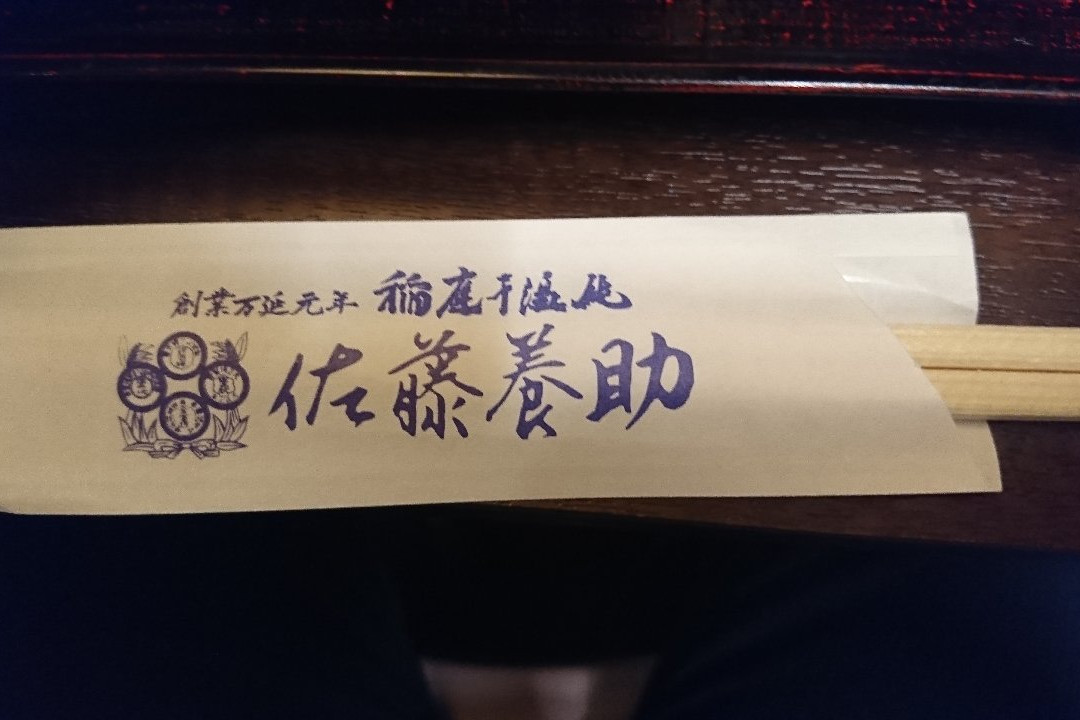 創業万延元年 稲庭干温飩
佐藤養助